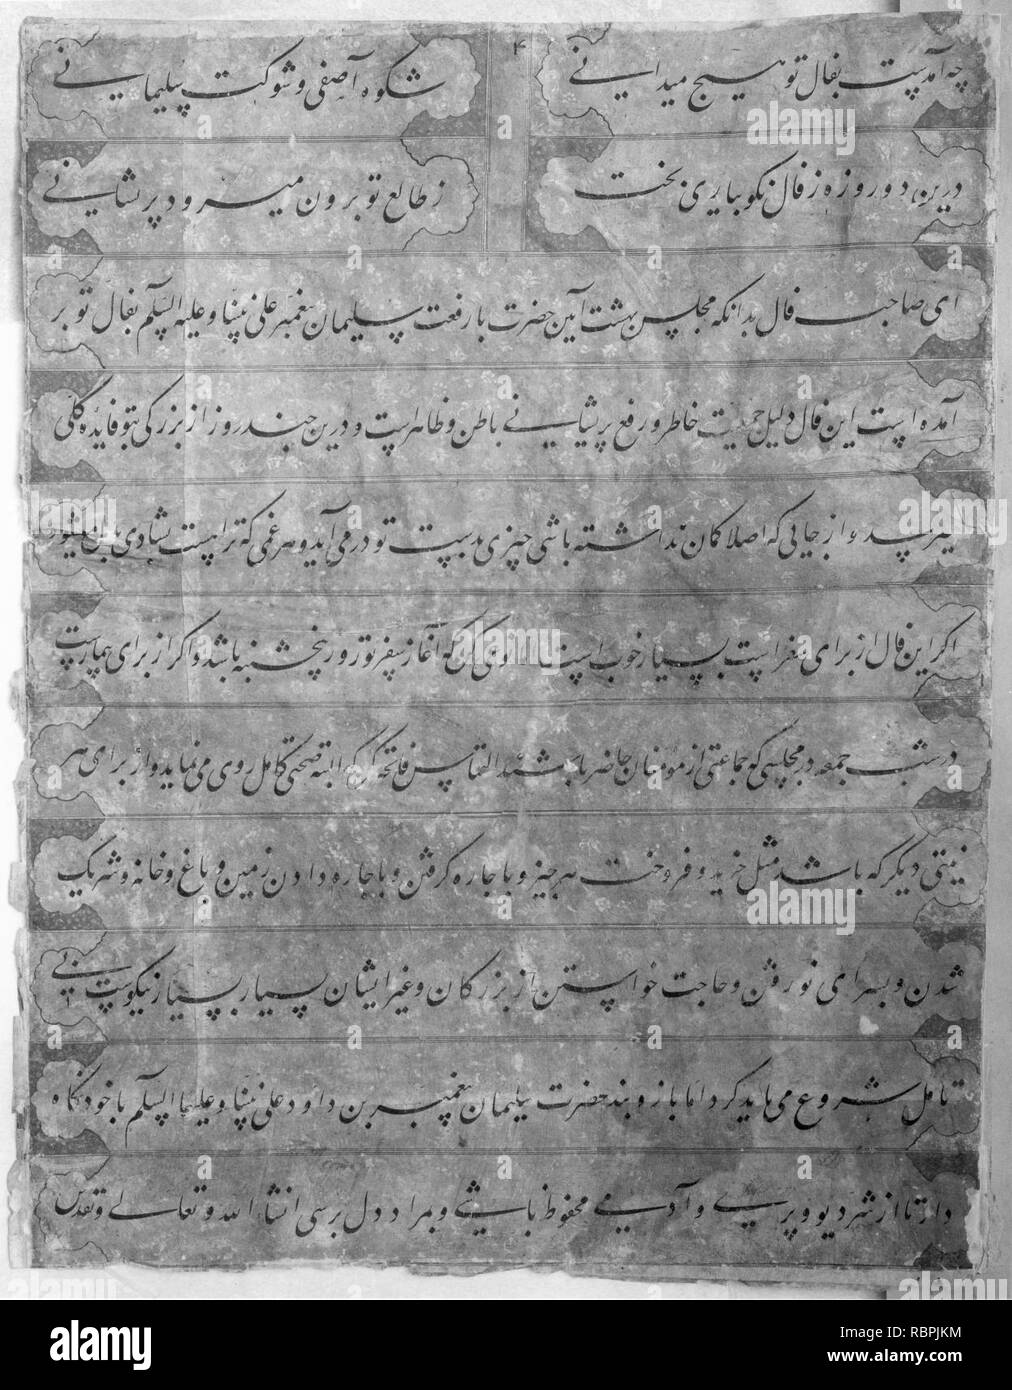 ۴
چه آمدست بفال تو هیچ میدانی
شکوه آصفی و شوکت سلیمانی
درین دو روزه ز فال نکو بیاری بخت
ز طالع تو برون میرود پریشانی
ای صاحب فال بدانکه مجلس بهشت آیین حضرت با رفعت سلیمان پیغمبر علی نبینا و علیه السلم بفال تو بر
آمده است این فال دلیل جمعیت خاطر و رفع پریشانی باطن و ظاهرست و درین چند روز از بزرگی بتو فایده کلی
میرسد و از جائی که اصلا کمان نداشته باشی چیزی بدست تو در می آید و هر غمی که تراست بشادی بدل میشود
اکر این فال از برای سفر است بسیار خوب است اوی کن که آغاز سفر تو روز پنجشنبه باشد و اکر از برای بیمارست
در شب جمعه در مجلسی که جماعتی از مؤمنان حاضر باشند التماس فاتحه کن که البته صحتی کامل روی می نماید و از برای هر
نیتی دیگر که باشد مثل خرید و فروخت هر چیز و باجاره کرفتن و باجاره دادن زمین و باغ و خانه و شریک
شدن و بسرای نو رفتن و حاجت خواستن از بزرکان و غیر ایشان بسیار بسیار نیکوست بی
تامل شروع می باید کرد اما بازوبند حضرت سلیمان پیغمبر بن داود علی نبینا و علیهما السلم با خود نگاه
دار تا از شر دیو و پری و آدمی محفوظ باشی و بمراد دل برسی انشاء الله و تعالی و تقدس
alamy
RBPJKM
www.alamy.com